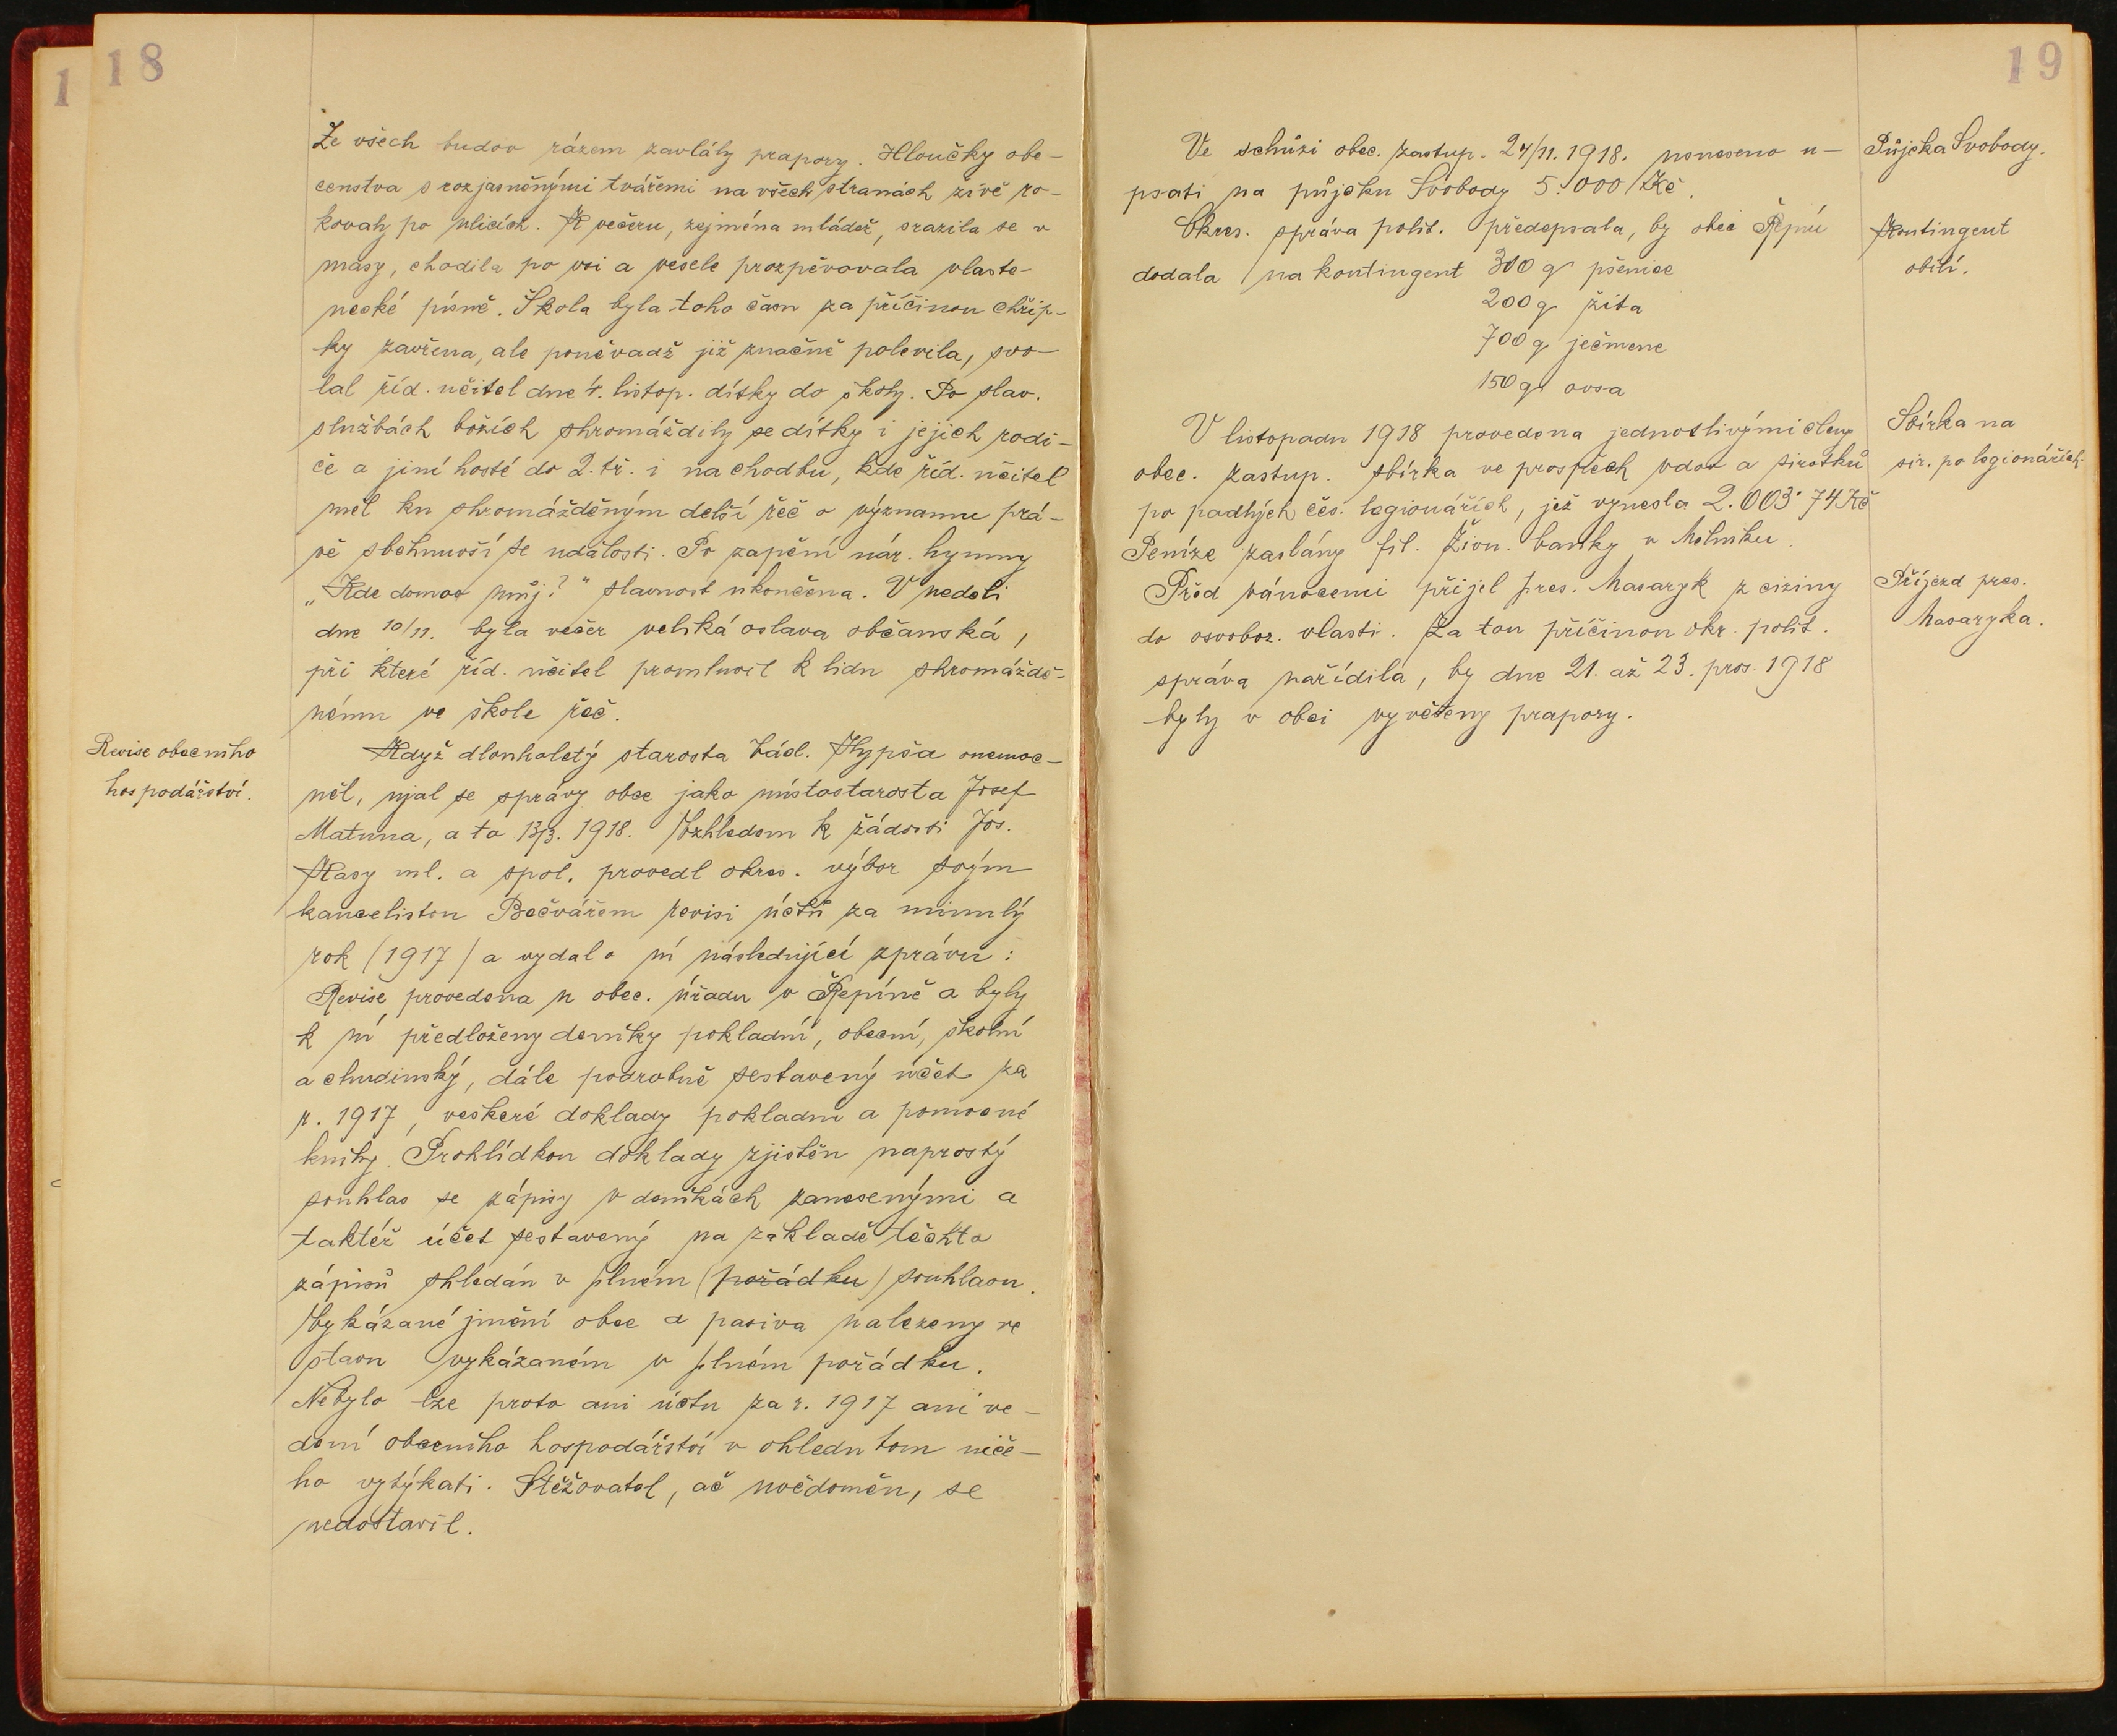 18
1
Ze všech budov rázem zavlály prapory. Hloučky obe-
censtva s rozjasněnými tvářemi na všech stranách živě ro-
kovaly po ulicích. K večeru, zejména mládež, srazila se v
masy, chodila po vsi a vesele prozpěvovala vlaste-
necké písně. Škola byla toho času za příčinou chřip-
ky zavřena, ale poněvadž již značně polevila, svo-
lal říd. učitel dne 4. listop. dítky do školy. Po slav.
službách božích shromáždily se dítky i jejich rodi-
če a jiní hosté do 2. tř. i na chodbu, kde říd. učitel
měl ku shromážděným delší řeč o významu prá-
vě sběhnuvší se události. Po zapění nár. hymny
„Kde domov můj?“ slavnost ukončena. V neděli
dne 10/11. byla večer velká oslava občanská,
při které říd. učitel promluvil k lidu shromáždě-
nému ve škole řeč.
Revise obecního
hospodářství.
Když dlouholetý starosta Václ. Hypša onemoc-
něl, ujal se správy obce jako místostarosta Josef
Matuna, a to 13/3. 1918. Vzhledem k žádosti Jos.
Kasy ml. a spol. provedl okres. výbor svým
kancelistou Bečvářem revisi účtů za minulý
rok (1917) a vydal o ní následující zprávu:
Revise provedena u obec. úřadu v Řepíně a byly
k ní předloženy deníky pokladní, obecní, školní
a chudinský, dále podrobně sestavený účet za
r. 1917, veškeré doklady pokladní a pomocné
knihy. Prohlídkou doklady zjištěn naprostý
souhlas se zápisy v deníkách zanesenými a
taktéž účet sestavený na základě těchto
zápisů shledán v plném (pořádku) souhlasu.
Vykázané jmění obce a pasiva nalezeny ve
stavu vykázaném v plném pořádku.
Nebylo lze proto ani účtu za r. 1917 ani ve-
dení obecního hospodářství v ohledu tom niče-
ho vytýkati. Stěžovatel, ač uvědoměn, se
nedostavil.
19
Ve schůzi obec. zastup. 24/11. 1918. usneseno u-
psati na půjčku Svobody 5.000 Kč.
Půjčka Svobody.
Okres. správa polit. předepsala, by obec Řepín
dodala na kontingent 300 q pšenice
200 q žita
700 q ječmene
150 q ovsa
Kontingent
obilí.
V listopadu 1918 provedena jednotlivými členy
obec. zastup. sbírka ve prospěch vdov a sirotků
po padlých čes. legionářích, jež vynesla 2.003·74 Kč
Peníze zaslány fil. Živn. banky v Mělníku.
Sbírka na
sir. po legionářích.
Před vánocemi přijel pres. Masaryk z ciziny
do osvoboz. vlasti. Za tou příčinou okr. polit.
správa nařídila, by dne 21. až 23. pros. 1918
byly v obci vyvěšeny prapory.
Příjezd pres.
Masaryka.